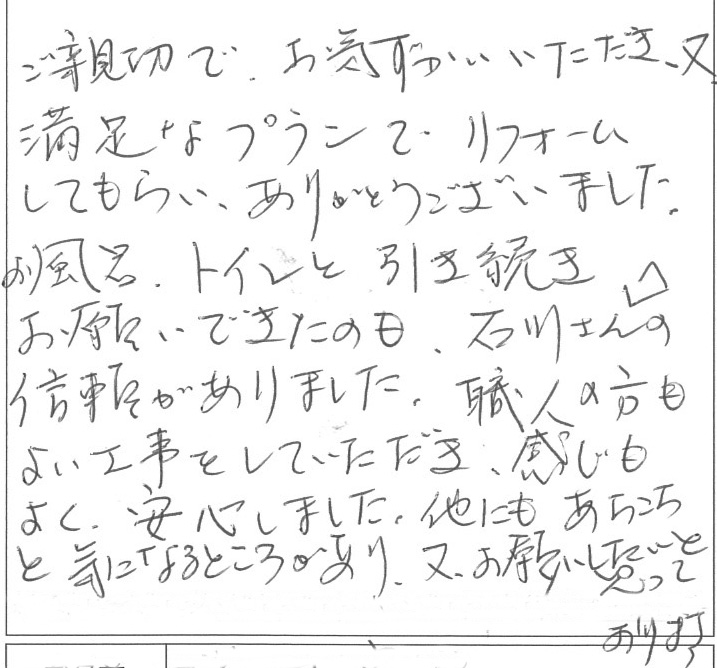 ご親切で、お気ずかいいただき、又
満足なプランで リフォーム
してもらい、ありがとうございました。
お風呂、トイレと引き続き
お願いできたのも、石川さんの
信頼がありました。職人の方も
よい工事をしていただき、感じも
よく、安心しました。他にもあちこち
と気になるところがあり、又、お願いしたいと
思って
おります